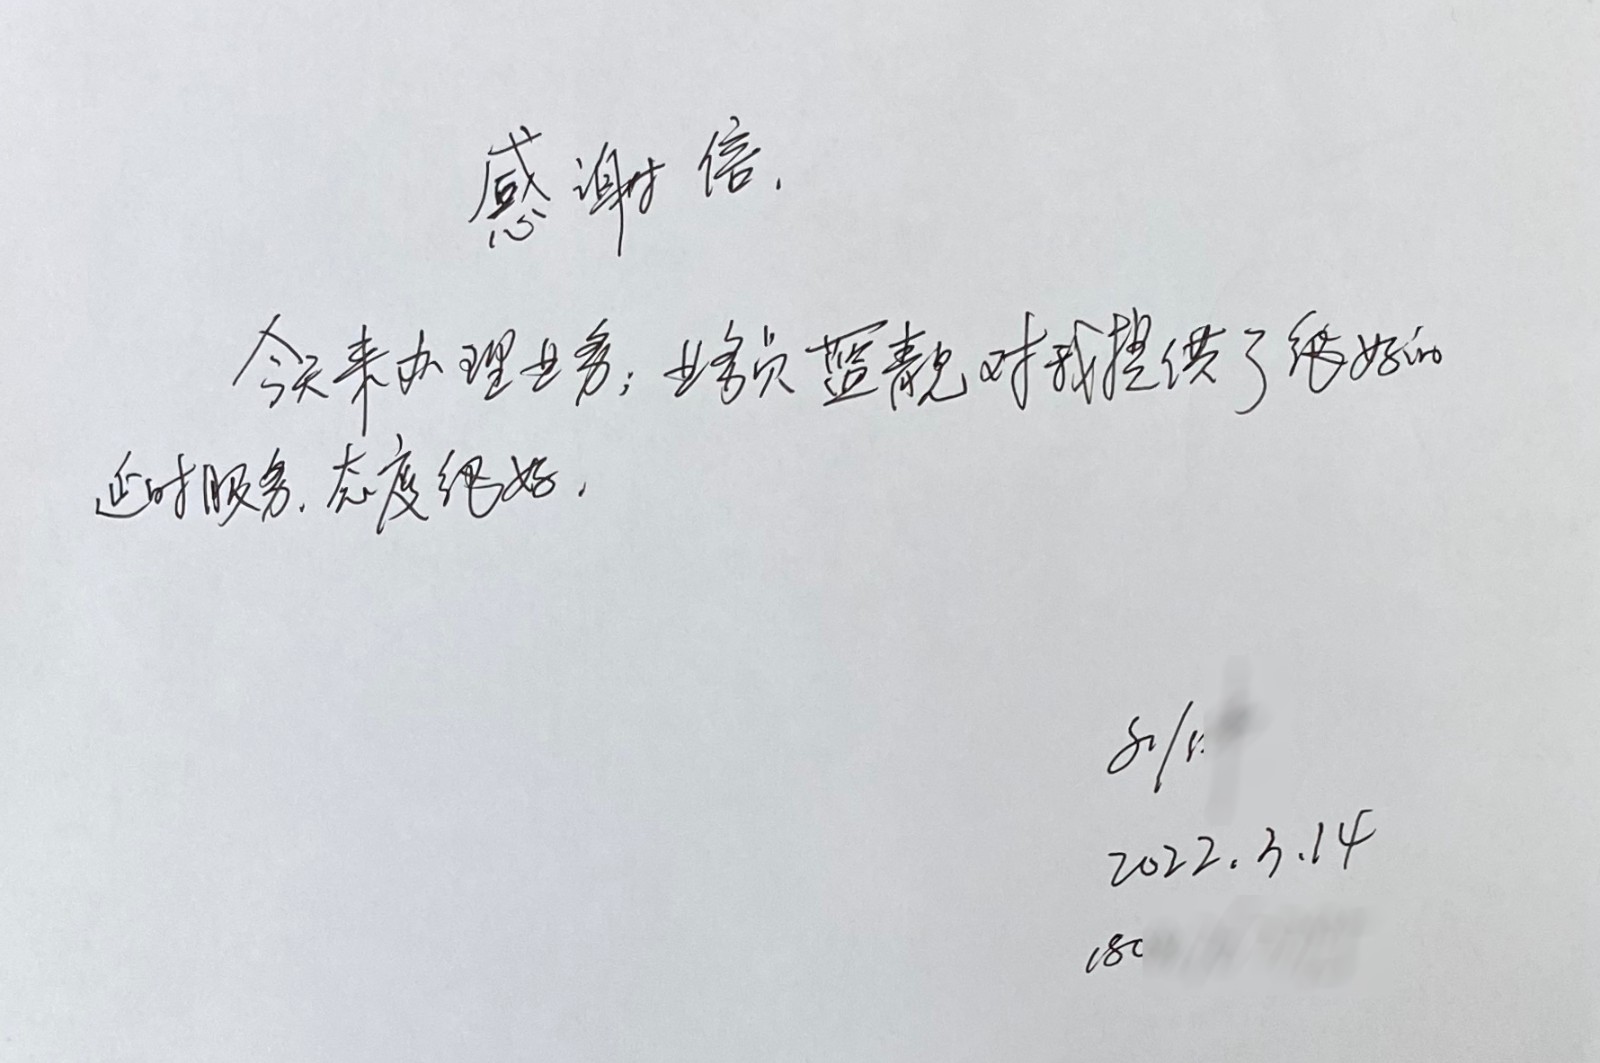 感谢信.
今天来办理业务;业务员蓝靓对我提供了很好的
延时服务.态度很好.
2022.3.14